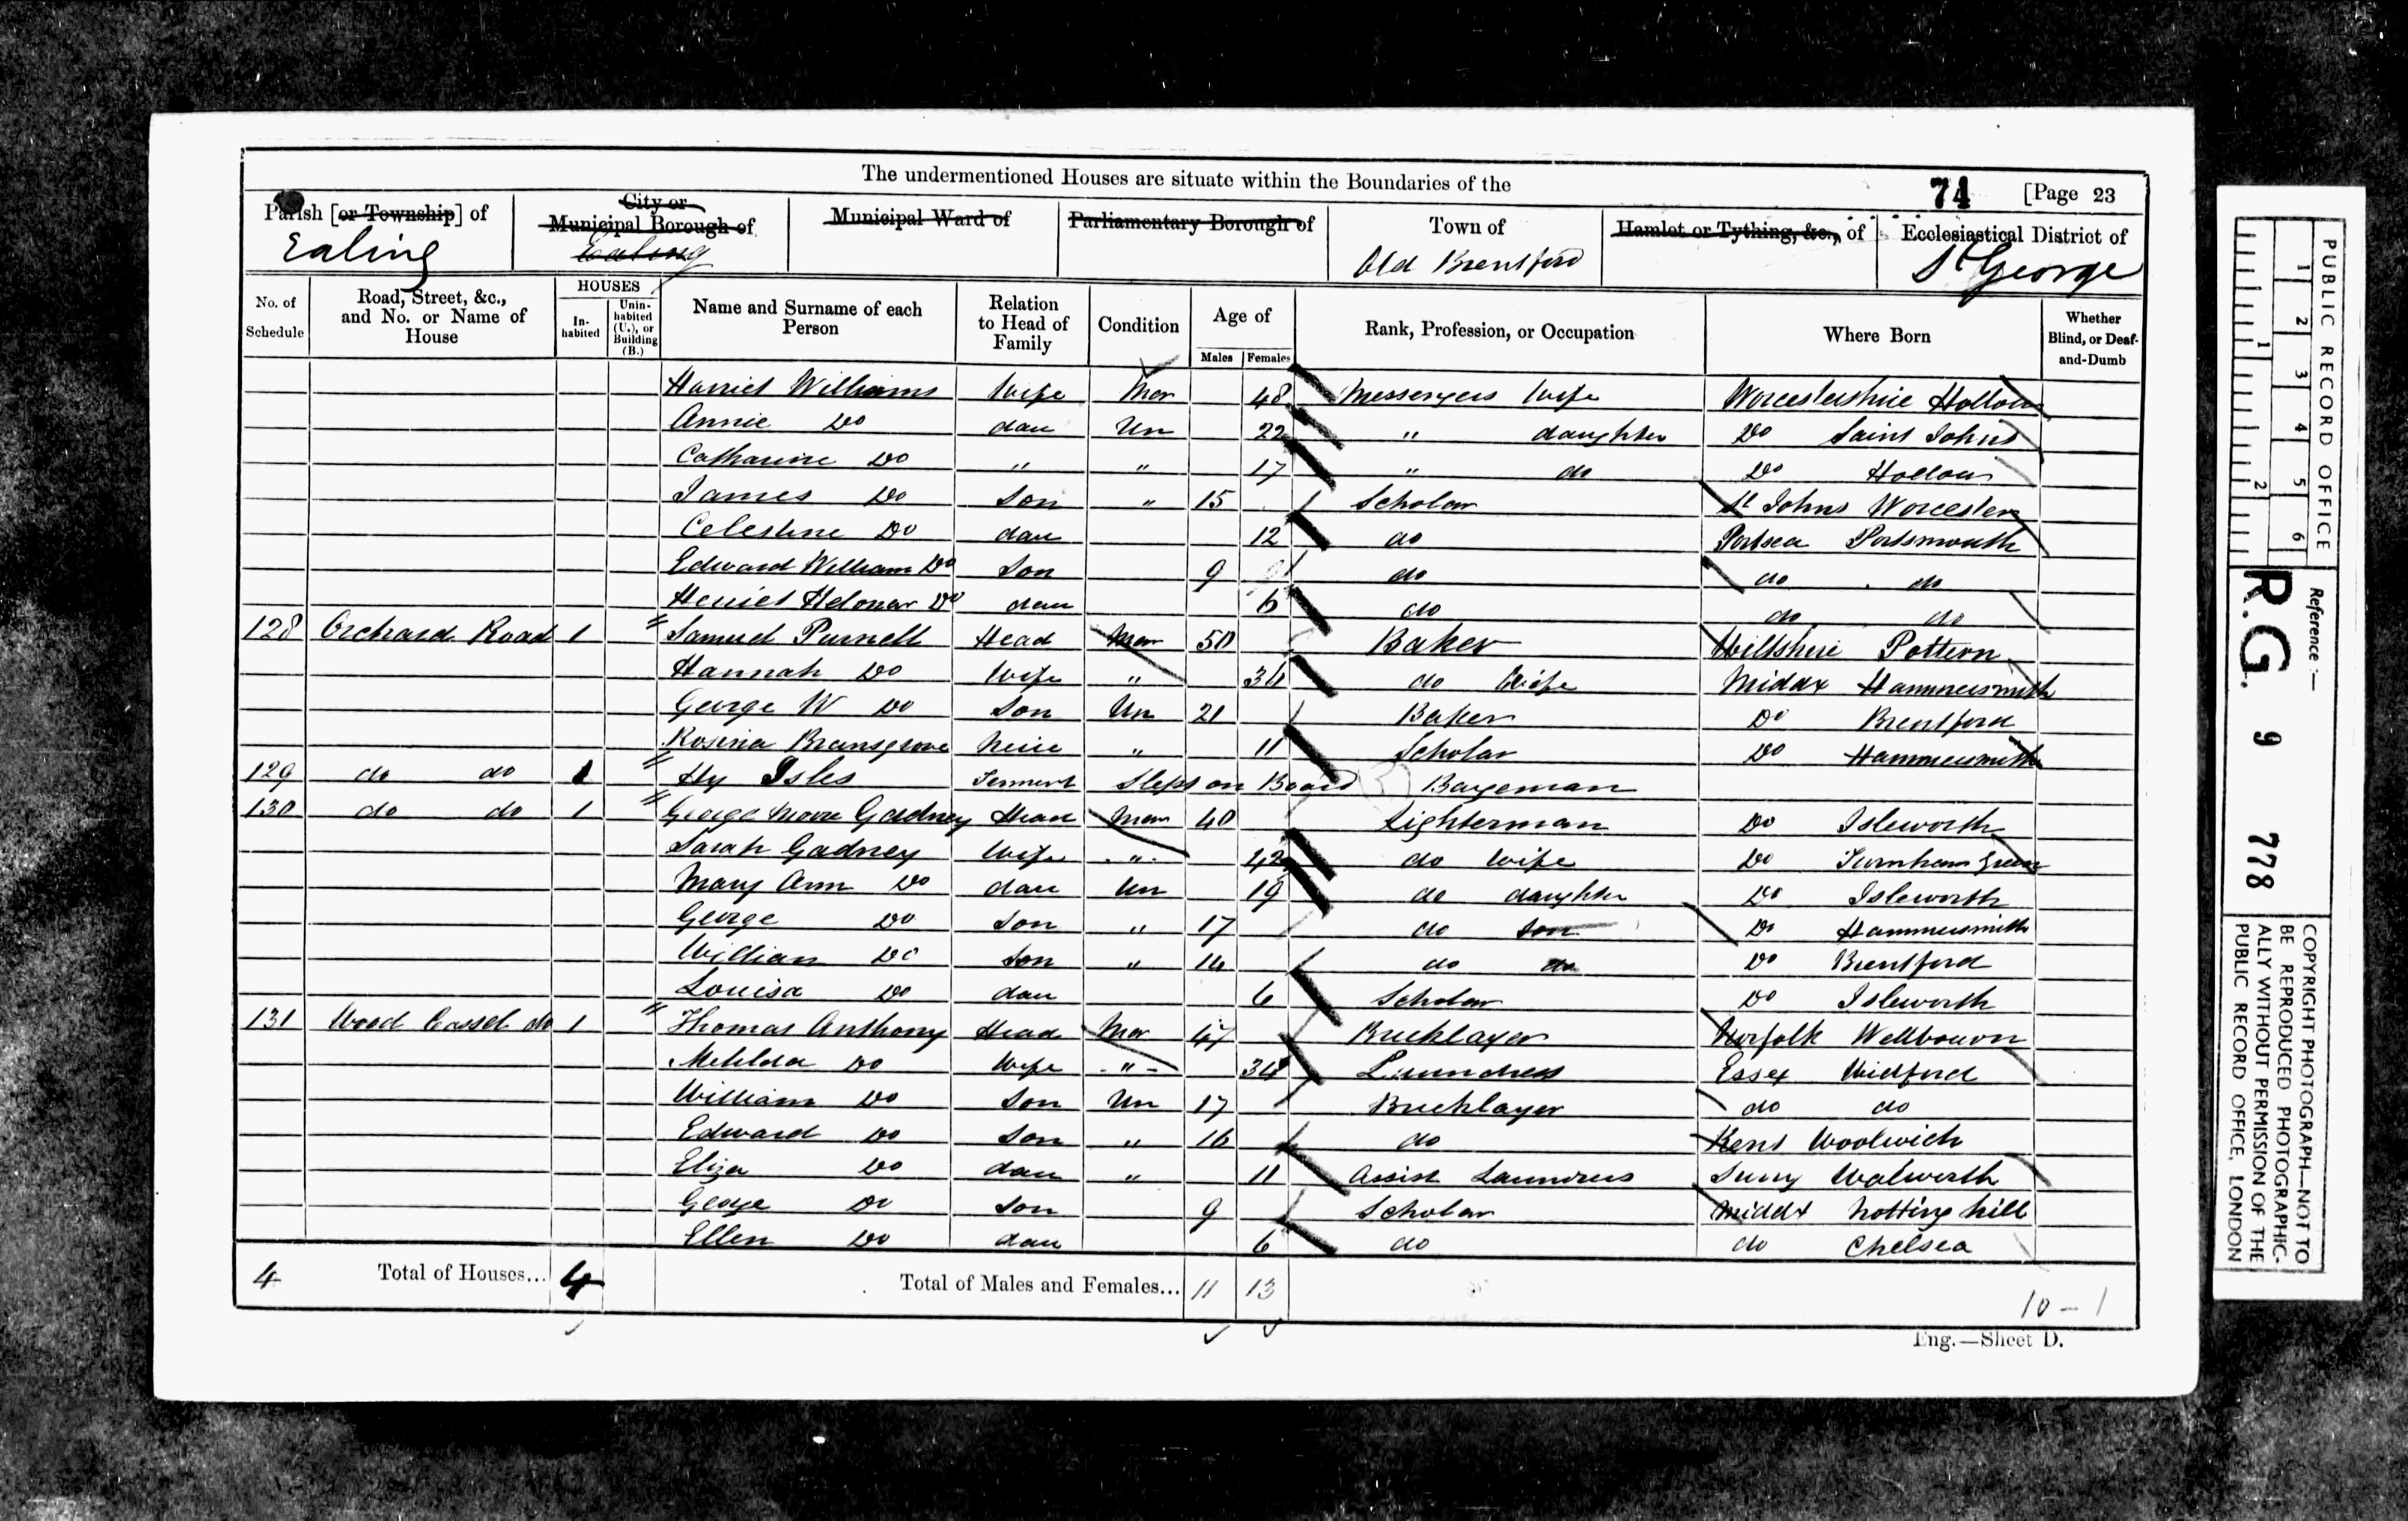 The undermentioned Houses are situate within the Boundaries of the
74 [Page 23
Parish [or Township] of City or Municipal Borough of Municipal Ward of Parliamentary Borough of Town of Hamlet or Tything, &c., of Ecclesiastical District of
Ealing Ealing Old Brentford St George
No. of Schedule Road, Street, &c., and No. or Name of House HOUSES Inhabited Uninhabited (U.), or Building (B.) Name and Surname of each Person Relation to Head of Family Condition Age of Males Females Rank, Profession, or Occupation Where Born Whether Blind, or Deaf-and-Dumb
Harriet Williams Wife Mar 48 Messengers Wife Worcestershire Hollow
Annie Do dau Un 22 " daughter Do Saint Johns
Catharine Do " " 17 " do Do Hollow
James Do Son " 15 Scholar St Johns Worcester
Celestine Do dau 12 do Portsea Portsmouth
Edward William Do Son 9 do do do
Do dau 6 do do do
128 Orchard Road 1 Samuel Purnell Head Mar 50 Baker Wiltshire Pottern
Hannah Do Wife " 36 do Wife Middx Hammersmith
George W Do Son Un 21 Baker Do Brentford
Rosina Bransgrove Neice " 11 Scholar Do Hammersmith
129 do do 1 Hy Isles Sleps on Board Bargeman
130 do do 1 George Moore Gadney Head Mar 40 Lighterman Do Isleworth
Sarah Gadney Wife " 42 do Wife Do Turnham Green
Mary Ann Do dau Un 19 do daughter Do Isleworth
George Do Son " 17 do son Do Hammersmith
William Do Son " 14 do do Do Brentford
Louisa Do dau 6 Scholar Do Isleworth
131 Wood Cassel do 1 Thomas Anthony Head Mar 47 Bricklayer Norfolk Wellbourn
Matilda Do Wife " 34 Laundress Essex Widford
William Do Son Un 17 Bricklayer do do
Edward Do Son " 16 do Kent Woolwich
Eliza Do dau " 11 Assist Laundress Surry Walworth
George Do Son 9 Scholar Middx Notting hill
Ellen Do dau 6 do do Chelsea
4 Total of Houses... 4 Total of Males and Females... 11 13
10 - 1
Eng.—Sheet D.
PUBLIC RECORD OFFICE
1 2 3 4 5 6
1 2
Reference :—
R.G. 9 778
COPYRIGHT PHOTOGRAPH—NOT TO
BE REPRODUCED PHOTOGRAPHIC-
ALLY WITHOUT PERMISSION OF THE
PUBLIC RECORD OFFICE, LONDON